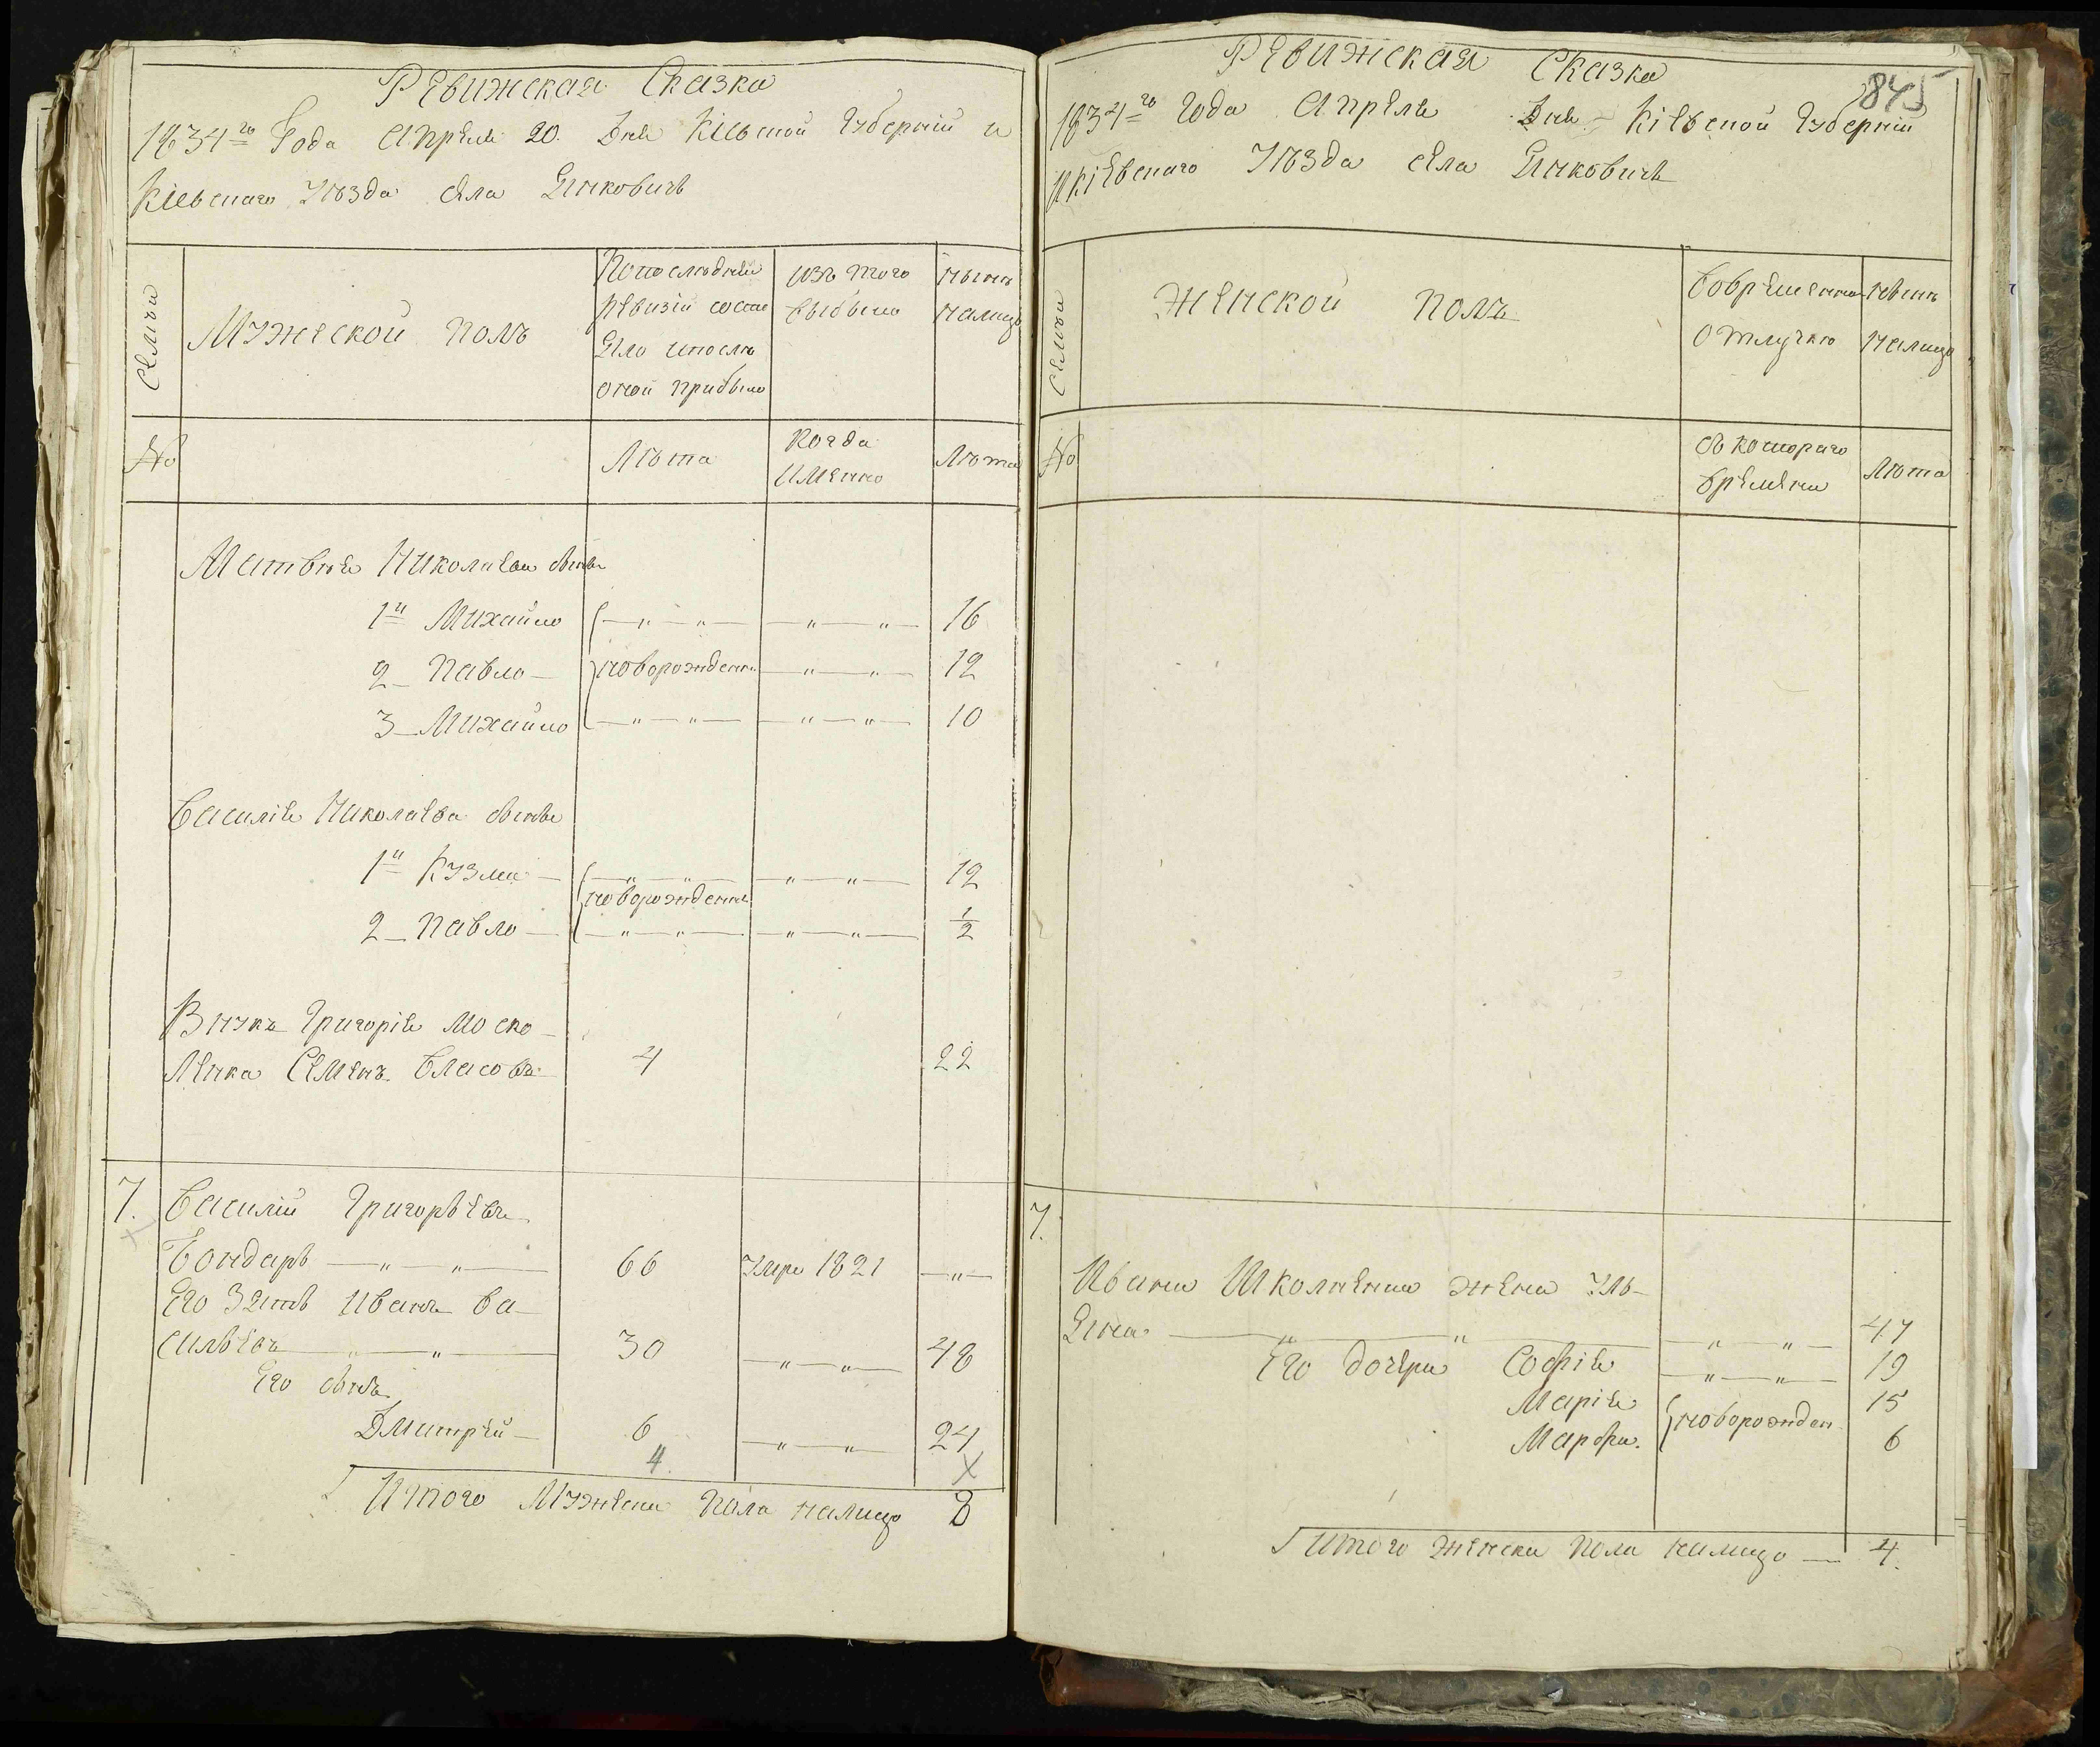 Ревижская Сказка
1834го Года Апреля 20. Дня Кіевской Губерніи и
Кіевскаго Уѣзда села Янковичь
Семьи
Мужеской полъ
По последней
ревизіи состо
яло и послѣ
оной прибыло
изъ того
выбыло
нынѣ
налицо
№
Лѣта
Когда
именно
Лѣта
Матвѣя Николаева сынъ
1й Михайло — " — " — — " — " — 16
2 — Павло — новорожденн. — " — " — 12
3 — Михайло — " — " — — " — " — 10
Василія Николаева сынъ
1й Кузма — — " — " — — " — " — 12
новорожденны
2 — Павло — — " — " — — " — " — ½
Внукъ Григорія Моско-
ленка Семенъ Власовъ 4 22
7. Василій Григорьевъ
Бондарь — " — " — 66 Умре 1821 — " —
Его Зять Иванъ Ва-
сильевъ — " — " — 30 — " — " — 48
Его сынъ
Дмитрей — 6 — " — " — 24
4. X
Итого Мужеска пола налицо 8
845
Ревижская Сказка
1834го Года Апреля Дня — Кіевской Губерніи
и Кіевскаго Уѣзда села Янковичь
Семьи
Женской полъ
Во временной
отлучкѣ
нынѣ
налицо
№
съ котораго
времени
Лѣта
7.
Ивана жена Уль-
яна — " — " — — " — " — 47
Его дочери Софія — " — " — 19
Марія новорожден. 15
Марфа. 6
Итого женска пола налицо — 4.